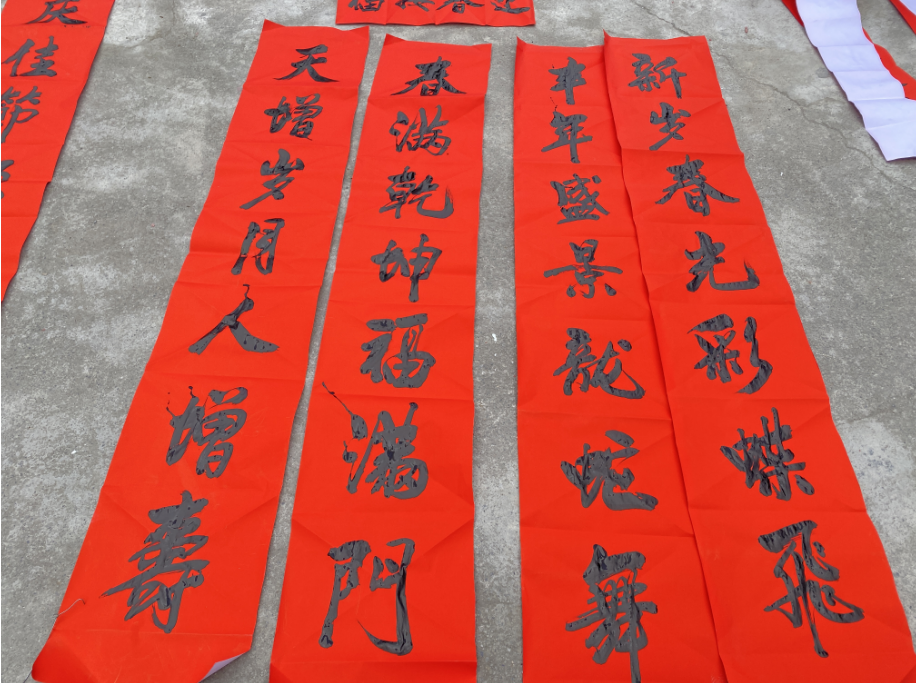 庆佳节
天增岁月人增寿
春满乾坤福满门
丰年盛景龍蛇舞
新岁春光彩蝶飞